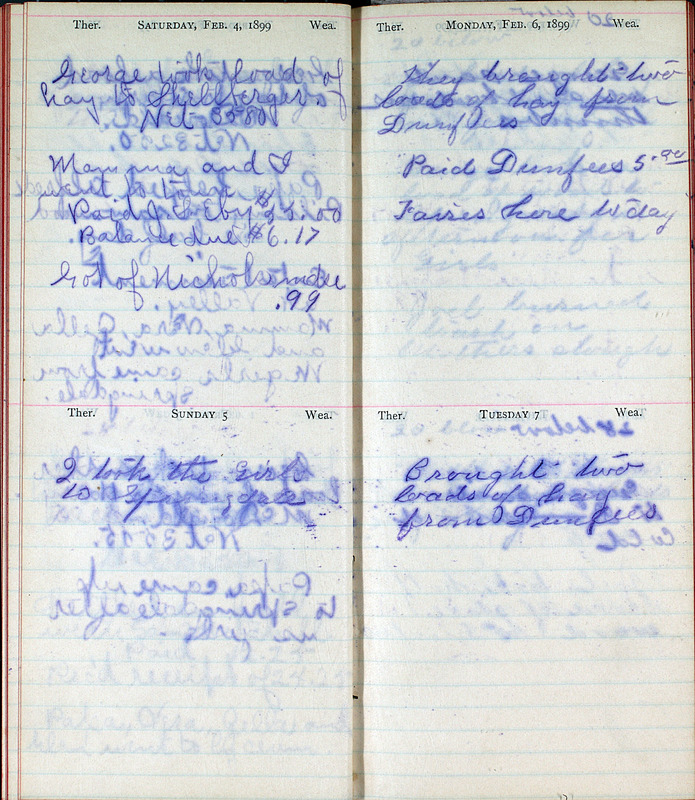 Ther. SATURDAY, FEB. 4, 1899 Wea.
George took load of
hay to Shellbergers.
Net 3580
Mamma and I
went to town
Paid J. S. Eby $25.00
Balance due $6.17
Got of Nichols mdse
.99
Ther. SUNDAY 5 Wea.
I took the girls
to Springdale
Ther. MONDAY, FEB. 6, 1899 Wea.
They brought two
loads of hay from
Dunfees
Paid Dunfees 5.00
Faires here to day
Ther. TUESDAY 7 Wea.
Brought two
loads of hay
from Dunfees